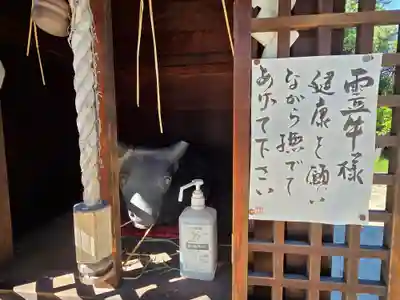 霊牛様
健康を願い
ながら撫でて
あげて下さい